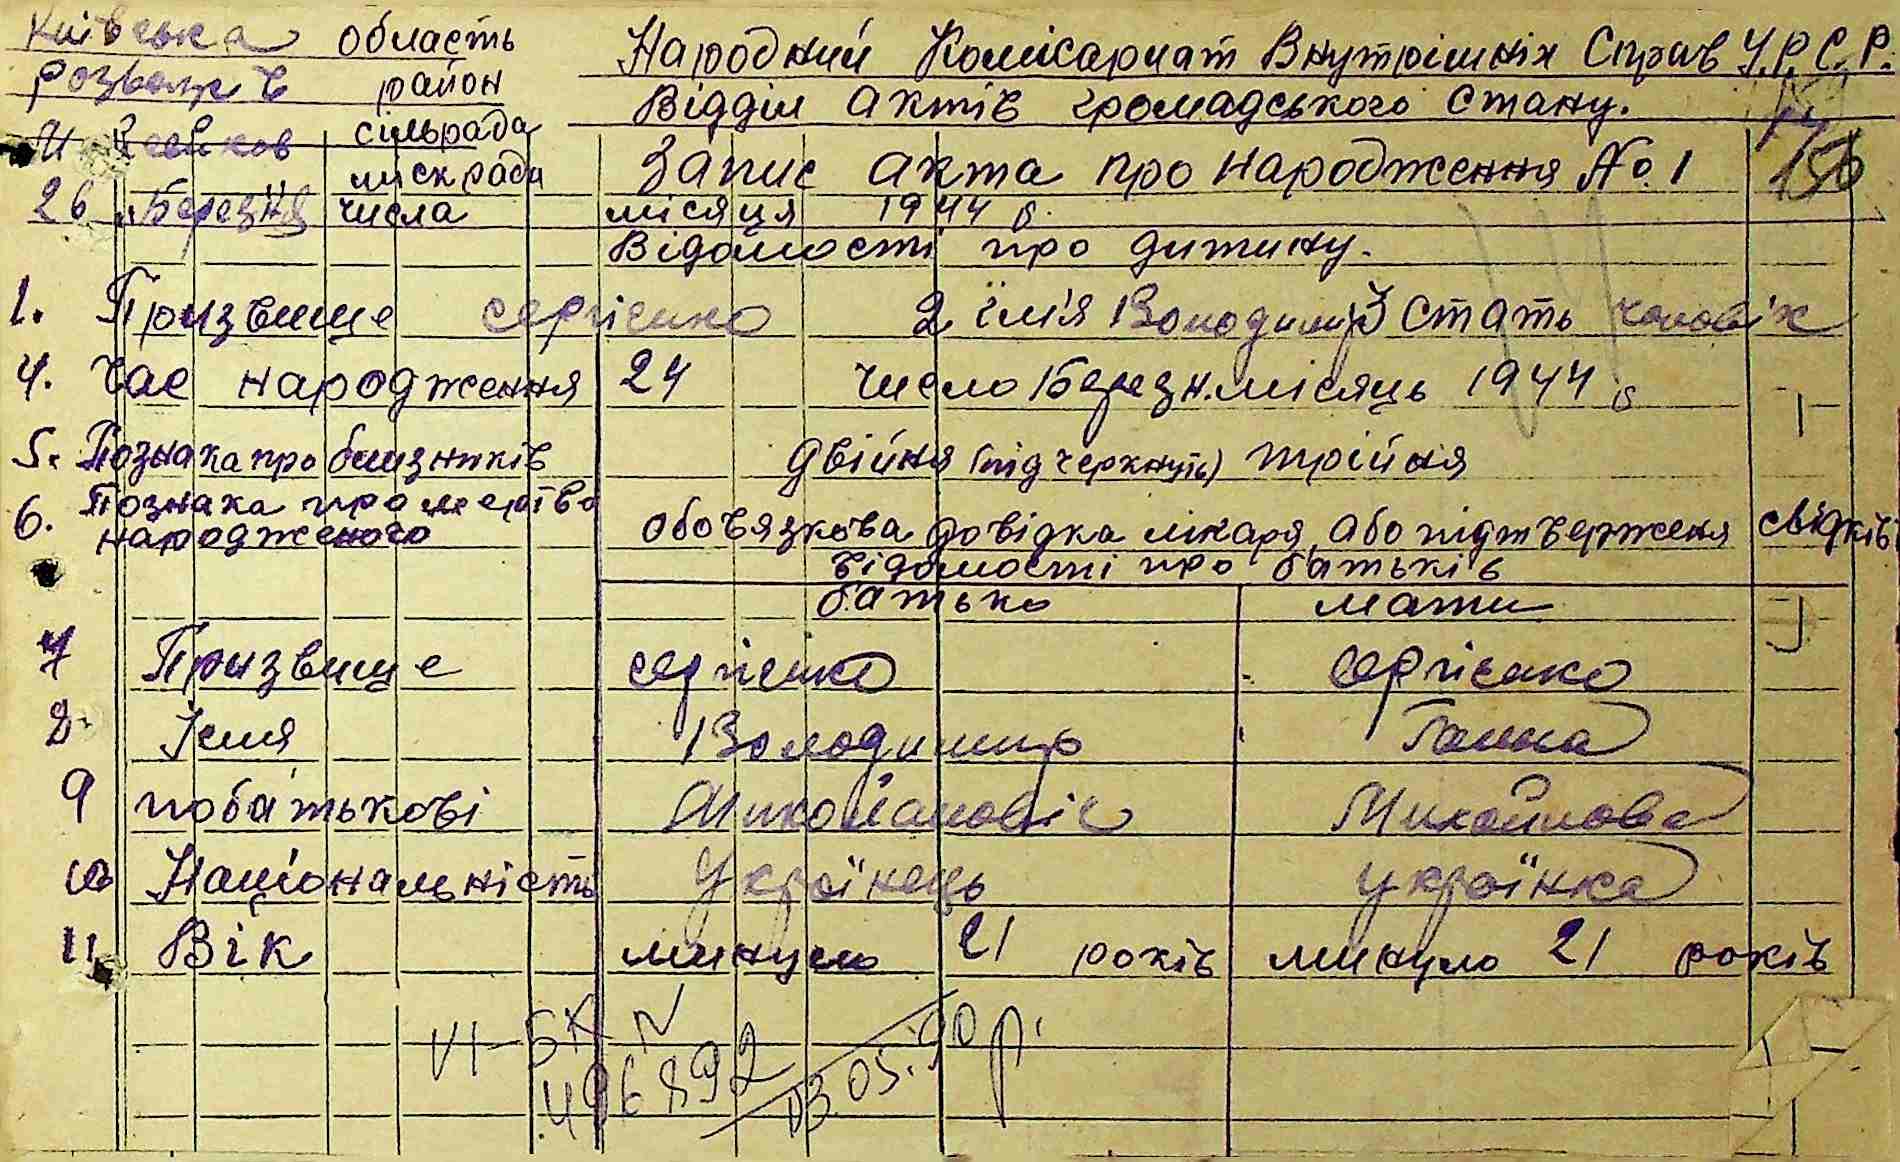 Київська область
Народний Комісариат Внутрішніх Справ У.Р.С.Р.
Розваж ів район
Відділ актів громадського стану.
сільрада
міскрада
Запис акта про народження No. 1
156
26 Березня числа місяця 1944 р.
Відомості про дитину.
1. Призвище Сергієнко 2 їм'я Володимир 3 стать чоловік
4. Час народження 24 число Березн. місяць 1944 р
5. Познака про близників двійня (підчеркнуть) трійня
6. Познака про мертво народженого обовязкова довідка лікаря, або підтверженя свідків
відомості про батьків
батько мати
7 Призвище Сергієнко Сергієнко
8. Імя Володимир Ганна
9 побатькові Миколайовіч Михайлова
10 Національність Українець Українка
11 Вік минуло 21 років минуло 21 років
VI-БК N
496892 03.05.90 р.